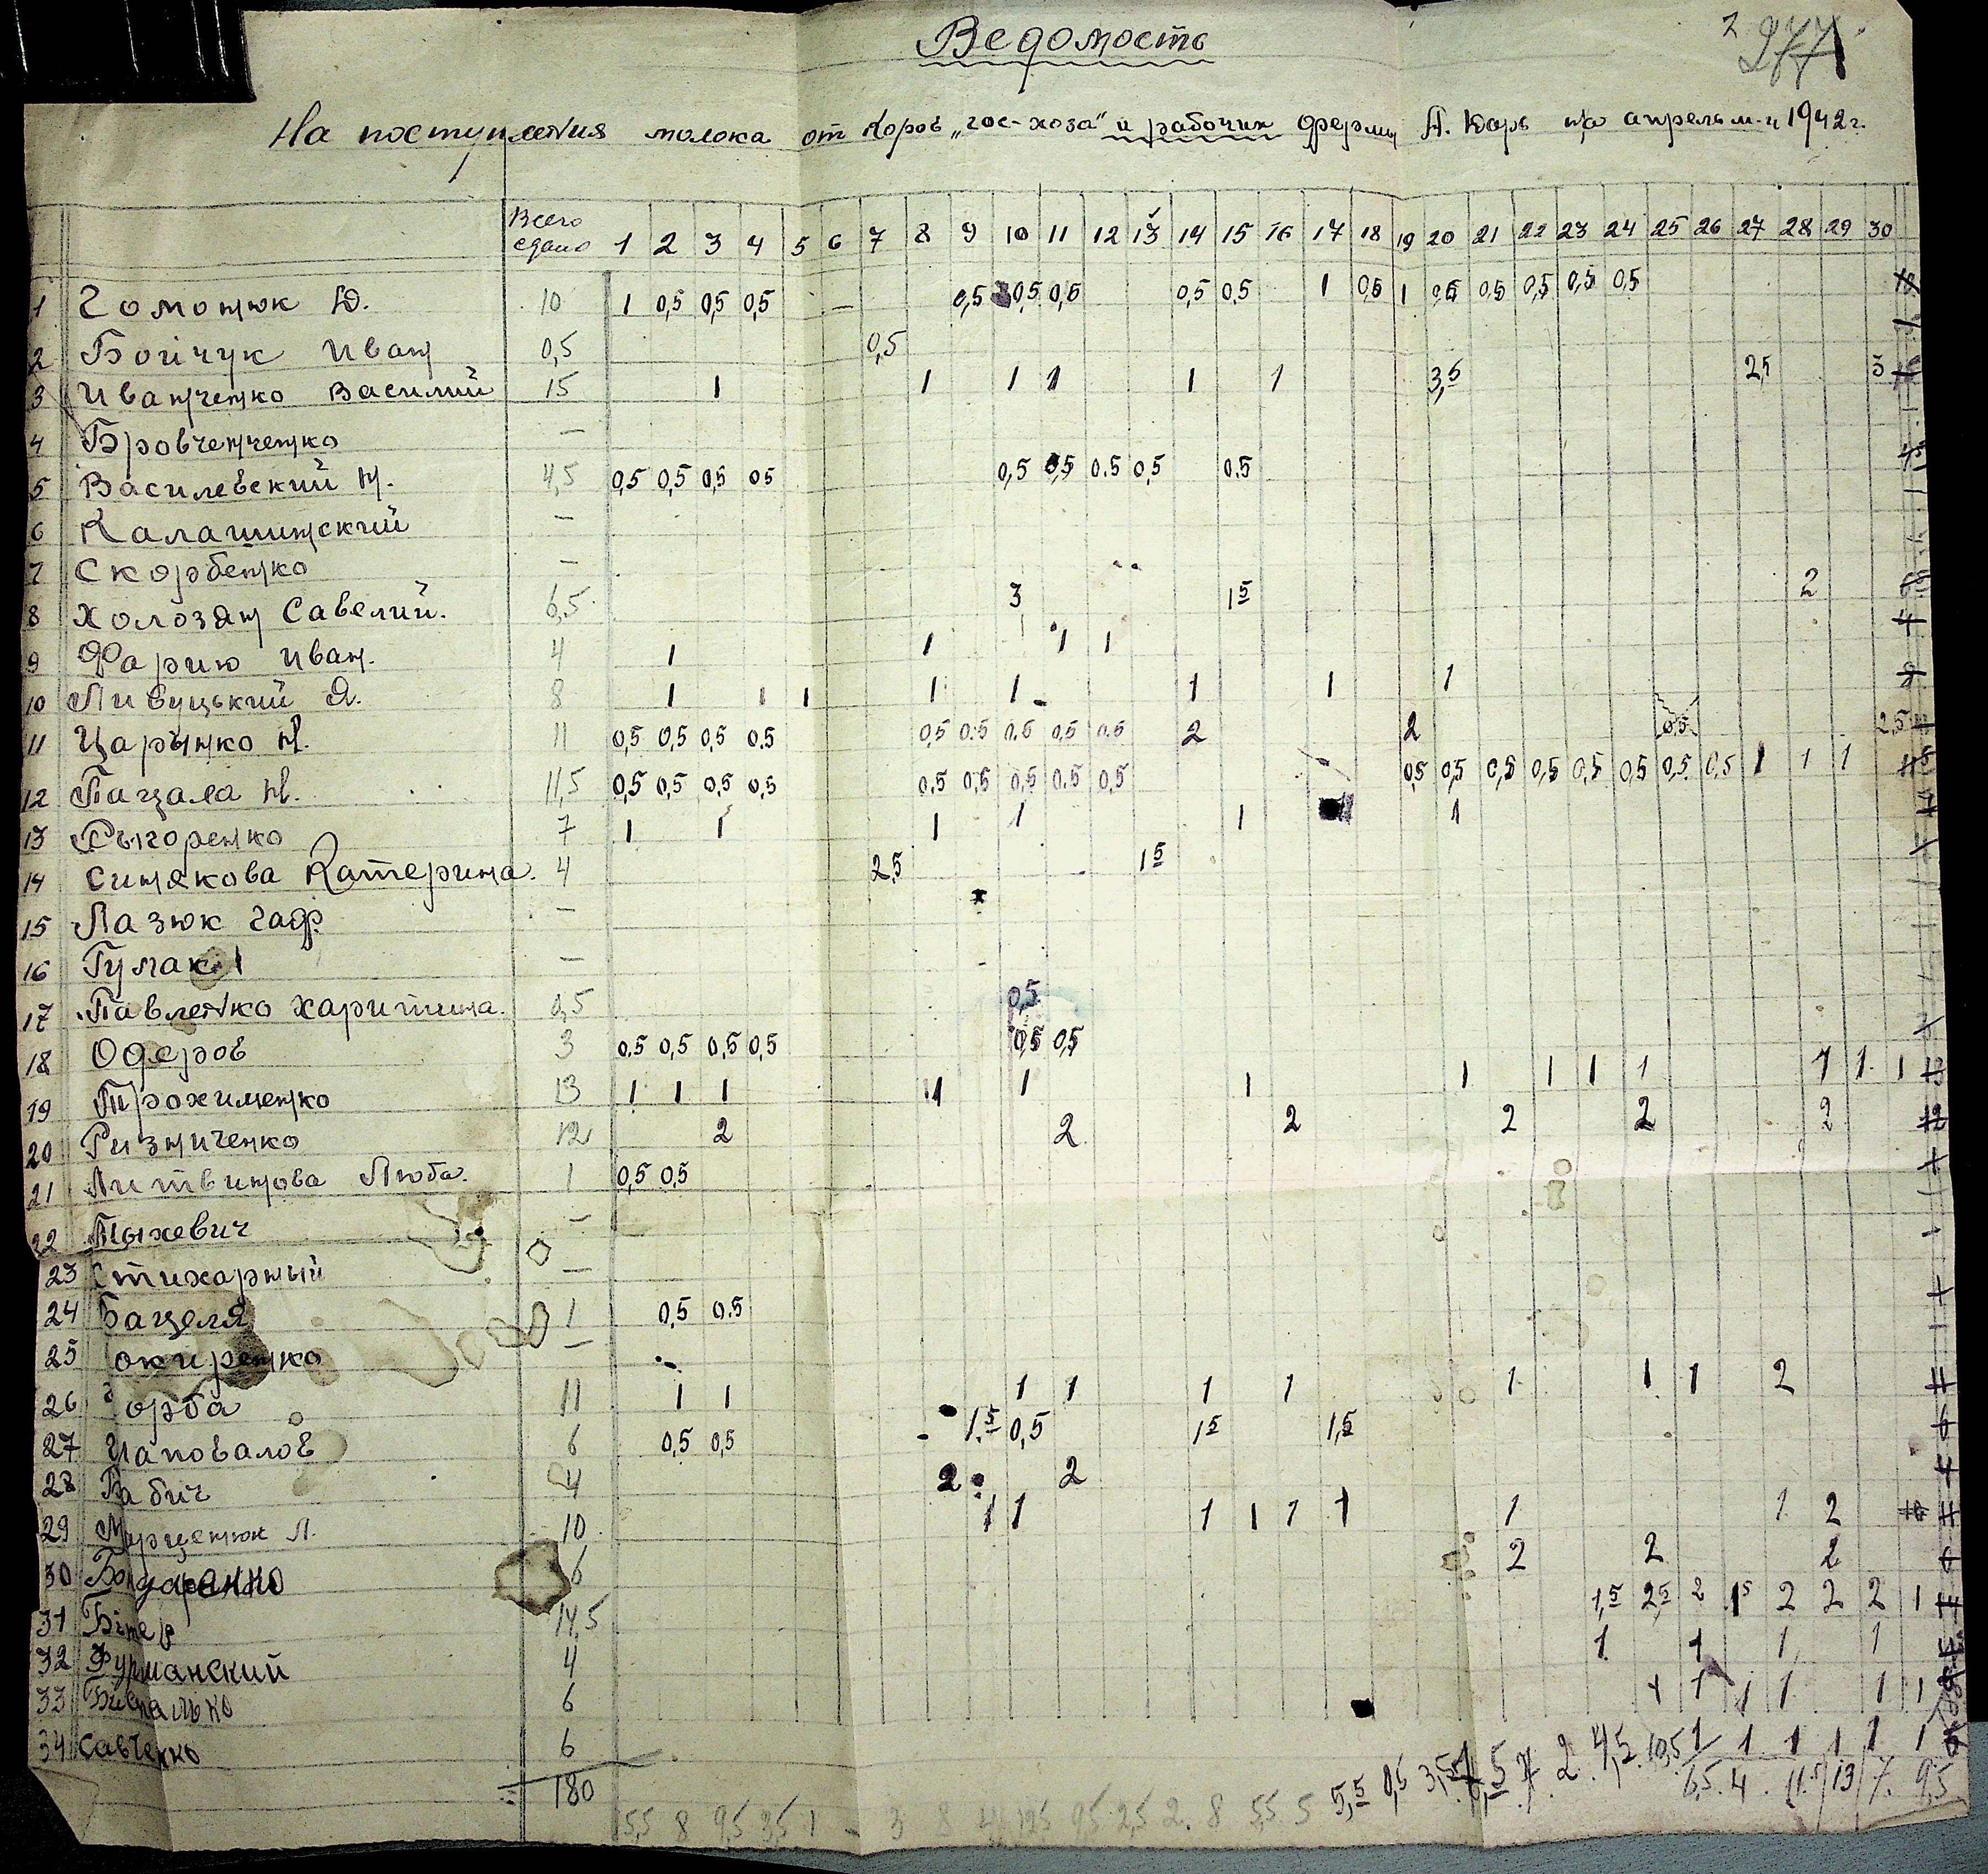 Ведомость
2 277
На поступления молока от коров „гос-хоза" и рабочих фермы А. Корь на апрель м-ц 1942 г.
Всего сдано 1 2 3 4 5 6 7 8 9 10 11 12 13 14 15 16 17 18 19 20 21 22 23 24 25 26 27 28 29 30
1 Гомонюк Ю. 10 1 0,5 0,5 0,5 — 0,5 0,5 0,5 0,5 0,5 1 0,5 1 0,5 0,5 0,5 0,5 0,5
2 Бойчук Иван 0,5 0,5
3 Иванченко Василий 15 1 1 1 1 1 1 3,5 2,5 3
4 Бровченченко —
5 Василевский Н. 4,5 0,5 0,5 0,5 0,5 0,5 0,5 0,5 0,5 0,5
6 Калашинский —
7 Скорбенко —
8 Холозян Савелий. 6,5 3 1 5 2
9 Фарию Иван. 4 1 1 1 1
10 Ливуцький Я. 8 1 1 1 1 1 1 1 1
11 Царынко Н. 11 0,5 0,5 0,5 0,5 0,5 0,5 0,5 0,5 0,5 2 2 0,5 2,5
12 Пацала Н. 11,5 0,5 0,5 0,5 0,5 0,5 0,5 0,5 0,5 0,5 0,5 0,5 0,5 0,5 0,5 0,5 0,5 0,5 1 1 1
13 Рыгоренко 7 1 1 1 1 1 1
14 Синякова Катерина. 4 2,5 1 5
15 Лазюк Гаф. —
16 Гулак —
17 Павленко Харитина. 0,5 0,5
18 Одеров 3 0,5 0,5 0,5 0,5 0,5 0,5
19 Трохименко 13 1 1 1 1 1 1 1 1 1 1 1 1 1 13
20 Ризниченко 12 2 2 2 2 2 2 12
21 Литвинова Люба. 1 0,5 0,5
22 Тыхевич —
23 Стихарный —
24 Бацеля 1 0,5 0,5
25 окиренко —
26 орба 11 1 1 1 1 1 1 1 1 1 2 11
27 Шаповалов 6 0,5 0,5 1.5 0,5 1 5 1,5 6
28 Бабич 4 2 2 4
29 Марценюк Л. 10 1 1 1 1 1 1 1 1 2 10 11
30 Бондаренко 6 2 2 2 6
31 Бітер 14,5 1,5 2,5 2 1 5 2 2 2 1 14
32 Фурманский 4 1 1 1 1
33 6 1 1 1 1 1 1
34 Савченко 6 1 1 1 1 1 1
180 5,5 8 9,5 3,5 1 — 3 8 4 12,5 9,5 2,5 2. 8 5,5 5 5,5 0,5 3,5 7. 2. 4,5. 10,5 6,5. 4. 11.5 13 7. 9,5